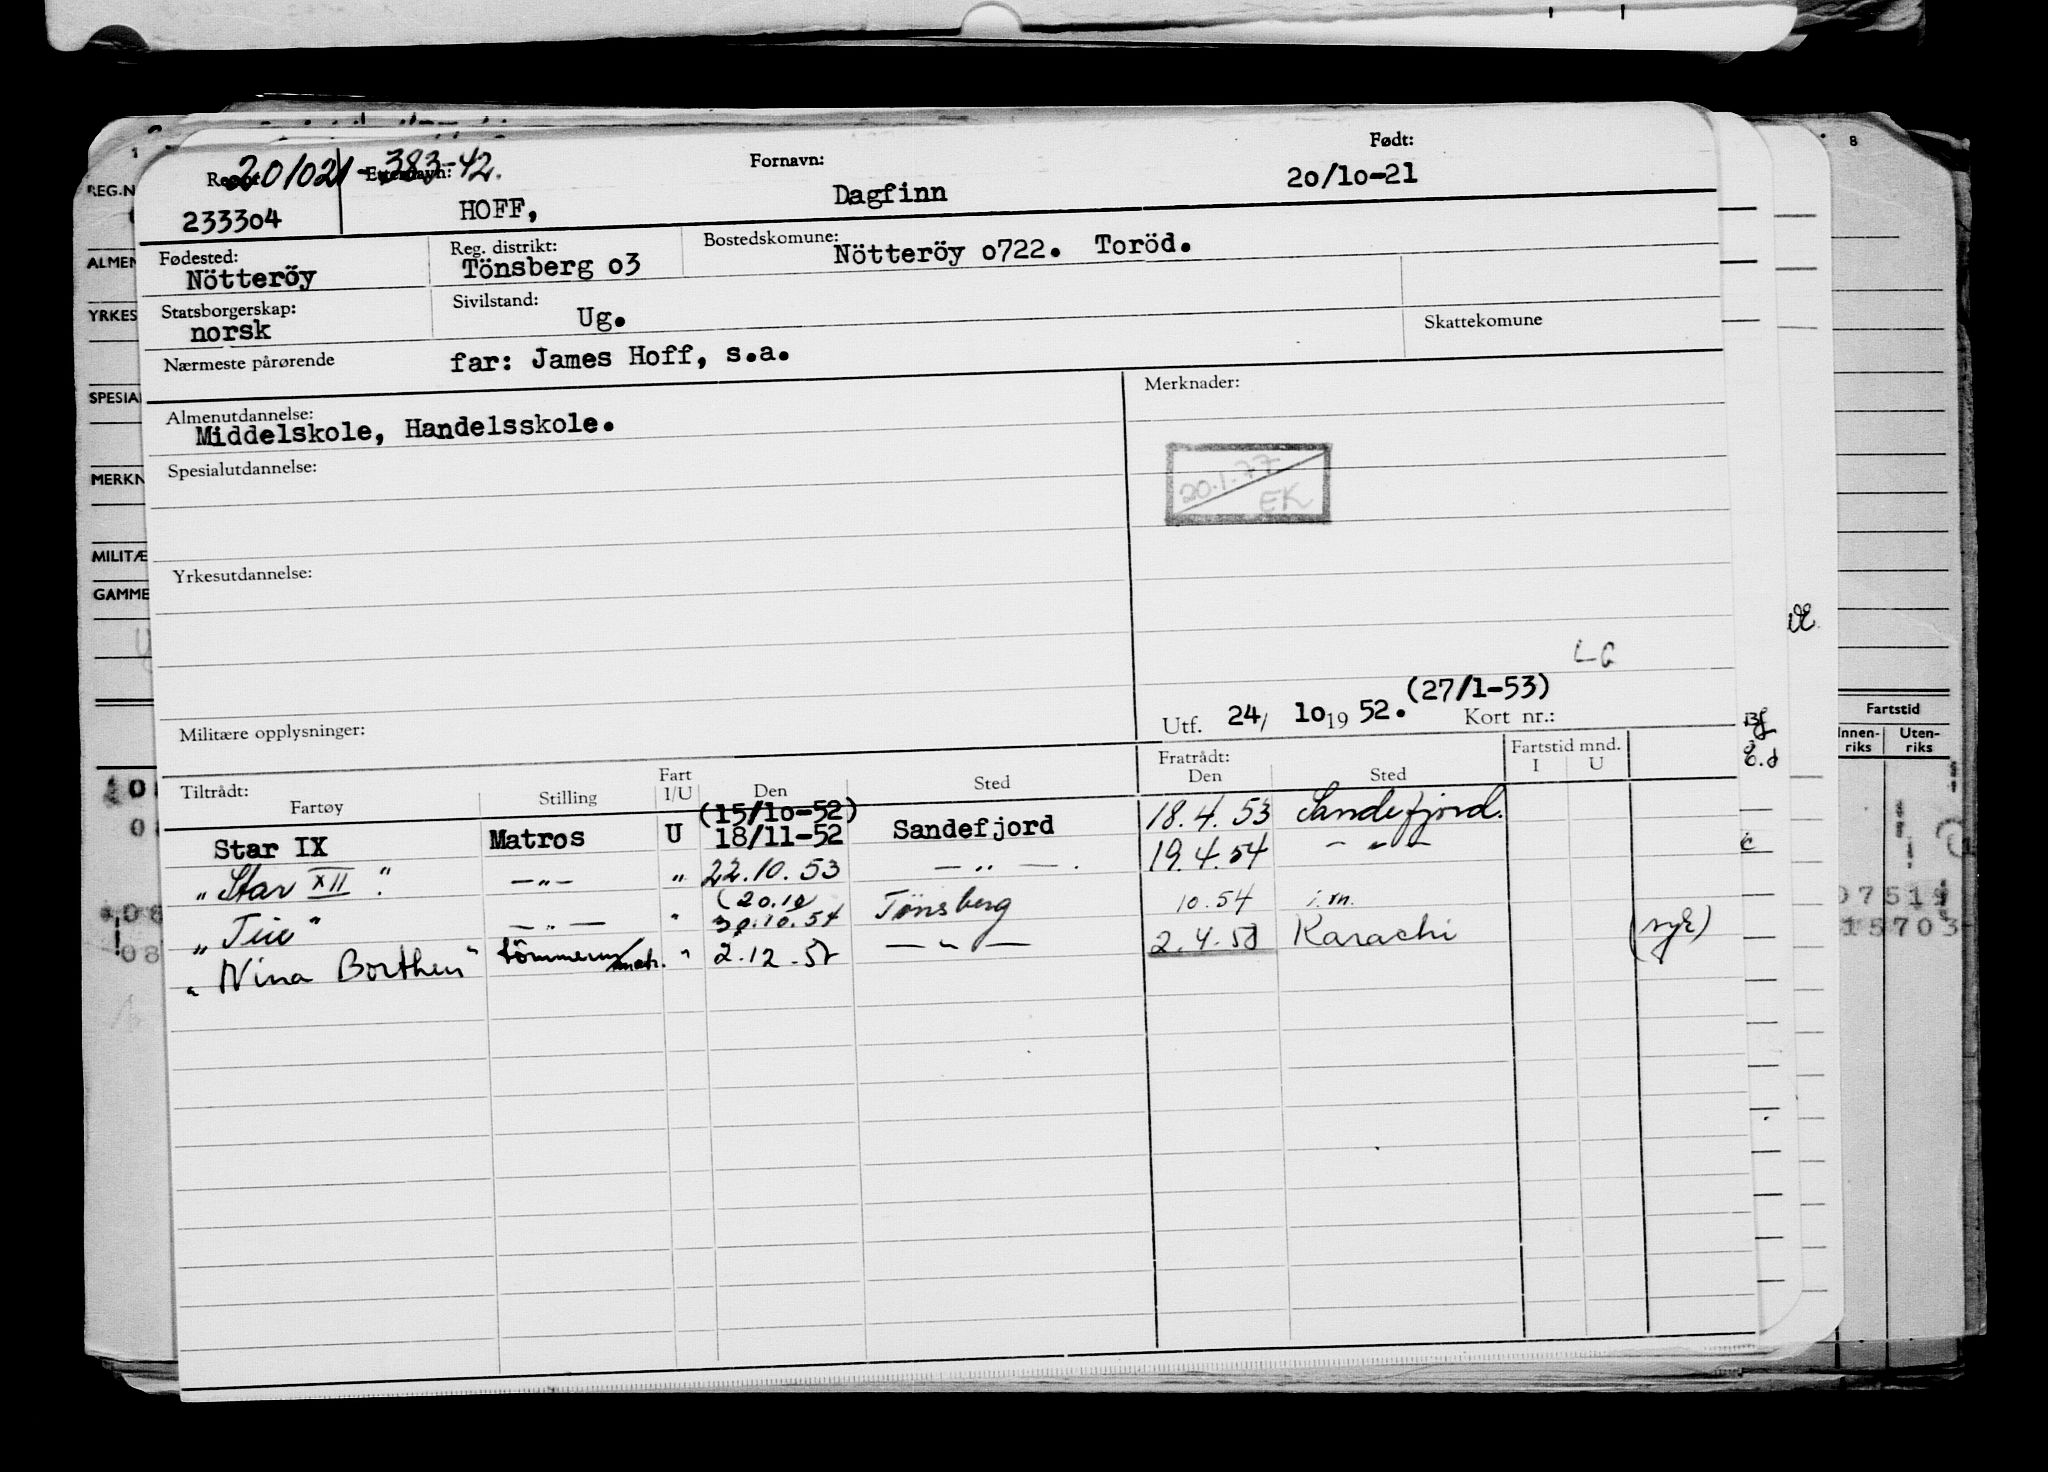 Fornavn: Født:
201021-383-42.
233304 HOFF, Dagfinn 20/10-21
Fødested: Reg. distrikt: Bostedskomune:
Nötteröy Tönsberg 03 Nötteröy 0722. Toröd.
Statsborgerskap: Sivilstand:
norsk Ug.
Skattekomune
Nærmeste pårørende far: James Hoff, s.a.
Almenutdannelse: Merknader:
Middelskole, Handelsskole.
Spesialutdannelse:
20.1.77
EK
Yrkesutdannelse:
(27/1-53)
Militære opplysninger: Utf. 24/ 10 19 52. Kort nr.:
Tiltrådt: Fratrådt: Fartstid mnd.
Fartøy Stilling Fart I/U Den Sted Den Sted I U
(15/10-52)
Star IX Matros U 18/11-52 Sandefjord 18.4.53 Sandefjord.
"Star XII". —"— " 22.10.53 —"—. 19.4.54 —"—
(20.10
—"— " 30.10.54 Tønsberg 10.54
"Nina Borthen" " 2.12.57 —"— 2.4.58 Karachi
REG.N
ALMEN
YRKES
SPESIA
MERKN
MILITÆ
GAMME
8
Fartstid
Innen-riks Uten-riks
07519
15703